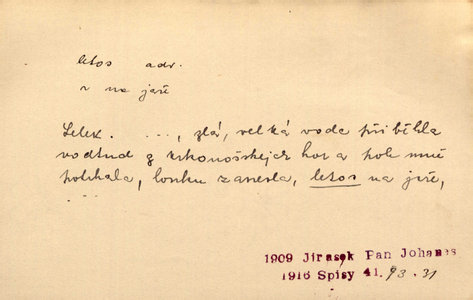 letos adv.
v na jaře
Lelek. ..., zlá, velká voda přiběhla
vodtud z krkonošskejch hor a pole mně
potrhala, louku zanesla, letos na jaře,
...
1909 Jirasek Pan Johanes
1916 Spisy 41. 93.31